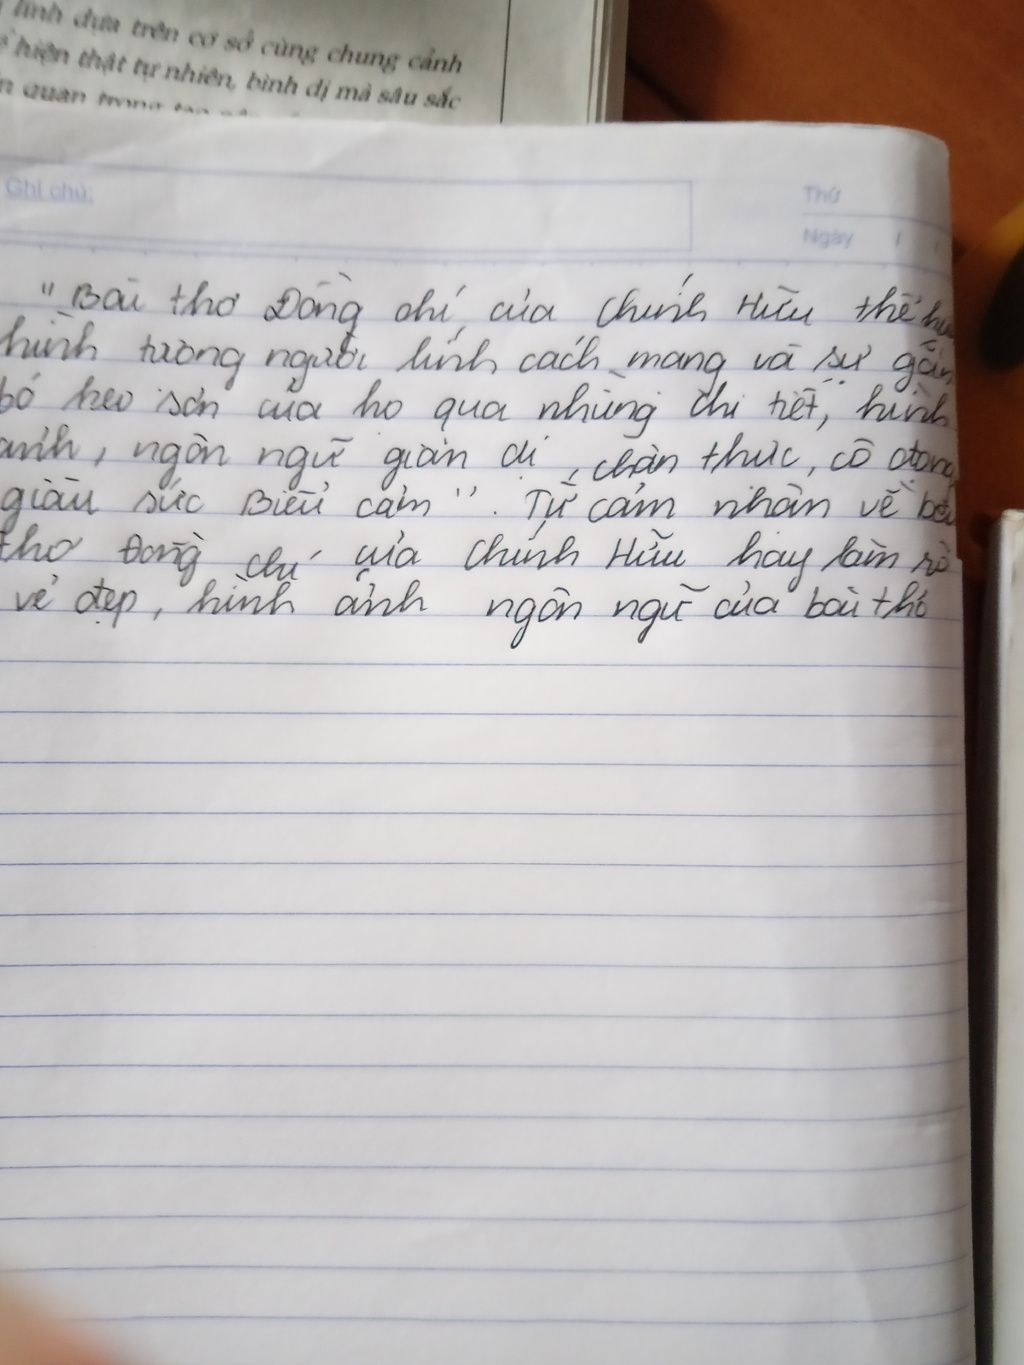 lính dựa trên cơ sở cùng chung cảnh
hiện thật tự nhiên, bình dị mà sâu sắc
quan trọng
Ghi chú:
Thứ
Ngày / /
"Bài thơ Đồng chí của Chính Hữu thể
hình tượng người lính cách mạng và sự gắn
bó keo sơn của họ qua những chi tiết, hình
ảnh, ngôn ngữ giản dị, chân thực, cô đọng
giàu sức Biểu cảm". Từ cảm nhận về bài
thơ Đồng chí của Chính Hữu hãy làm rõ
vẻ đẹp, hình ảnh ngôn ngữ của bài thơ